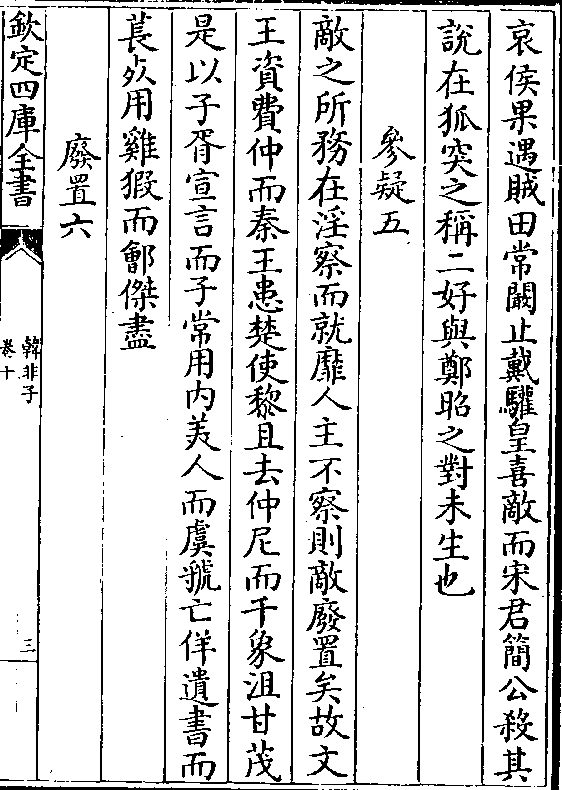 哀侯果遇賊田常闞止戴驩皇喜敵而宋君簡公殺其
說在狐突之稱二好與鄭昭之對未生也
參疑五
敵之所務在淫察而就靡人主不察則敵廢置矣故文
王資費仲而秦王患楚使黎且去仲尼而干象沮甘茂
是以子胥宣言而子常用内美人而虞虢亡佯遺書而
萇㢤用雞猳而鄶傑盡
廢置六
欽定四庫全書
韓非子
卷十
三